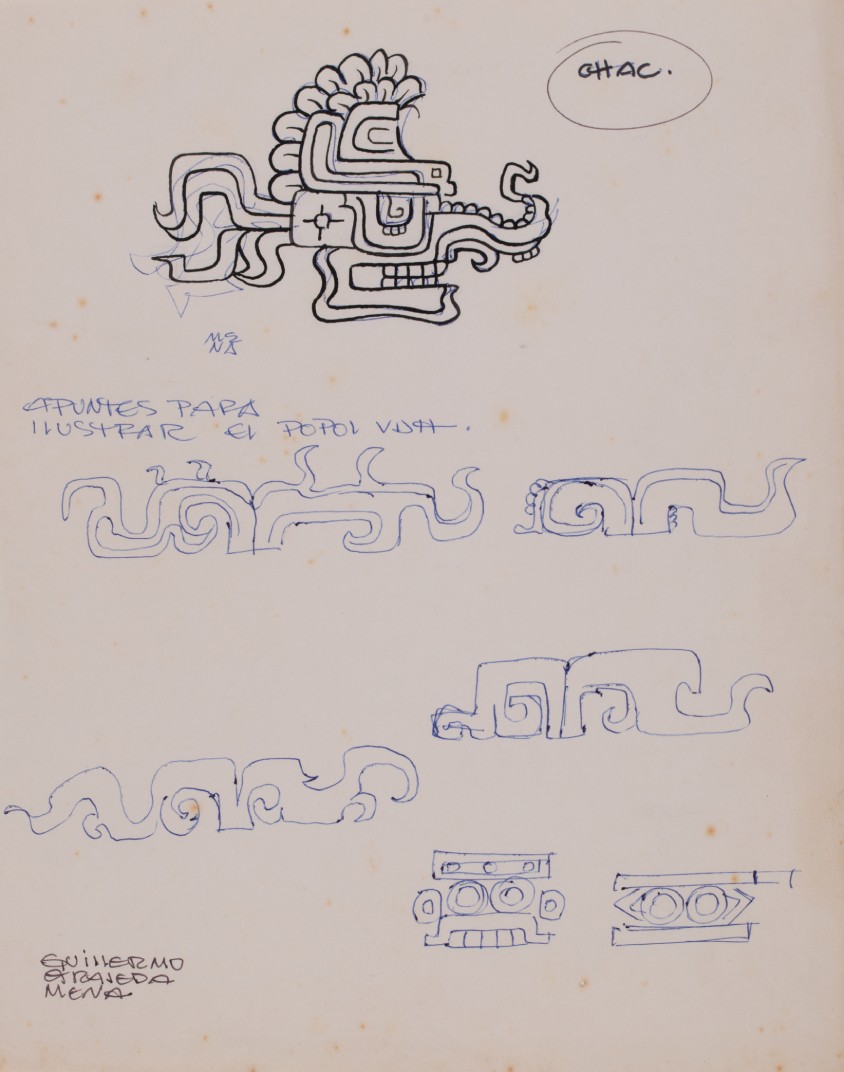 CHAC.
ME
NA
APUNTES PARA
ILUSTRAR EL POPOL VUH.
GUILLERMO
GRAJEDA
MENA